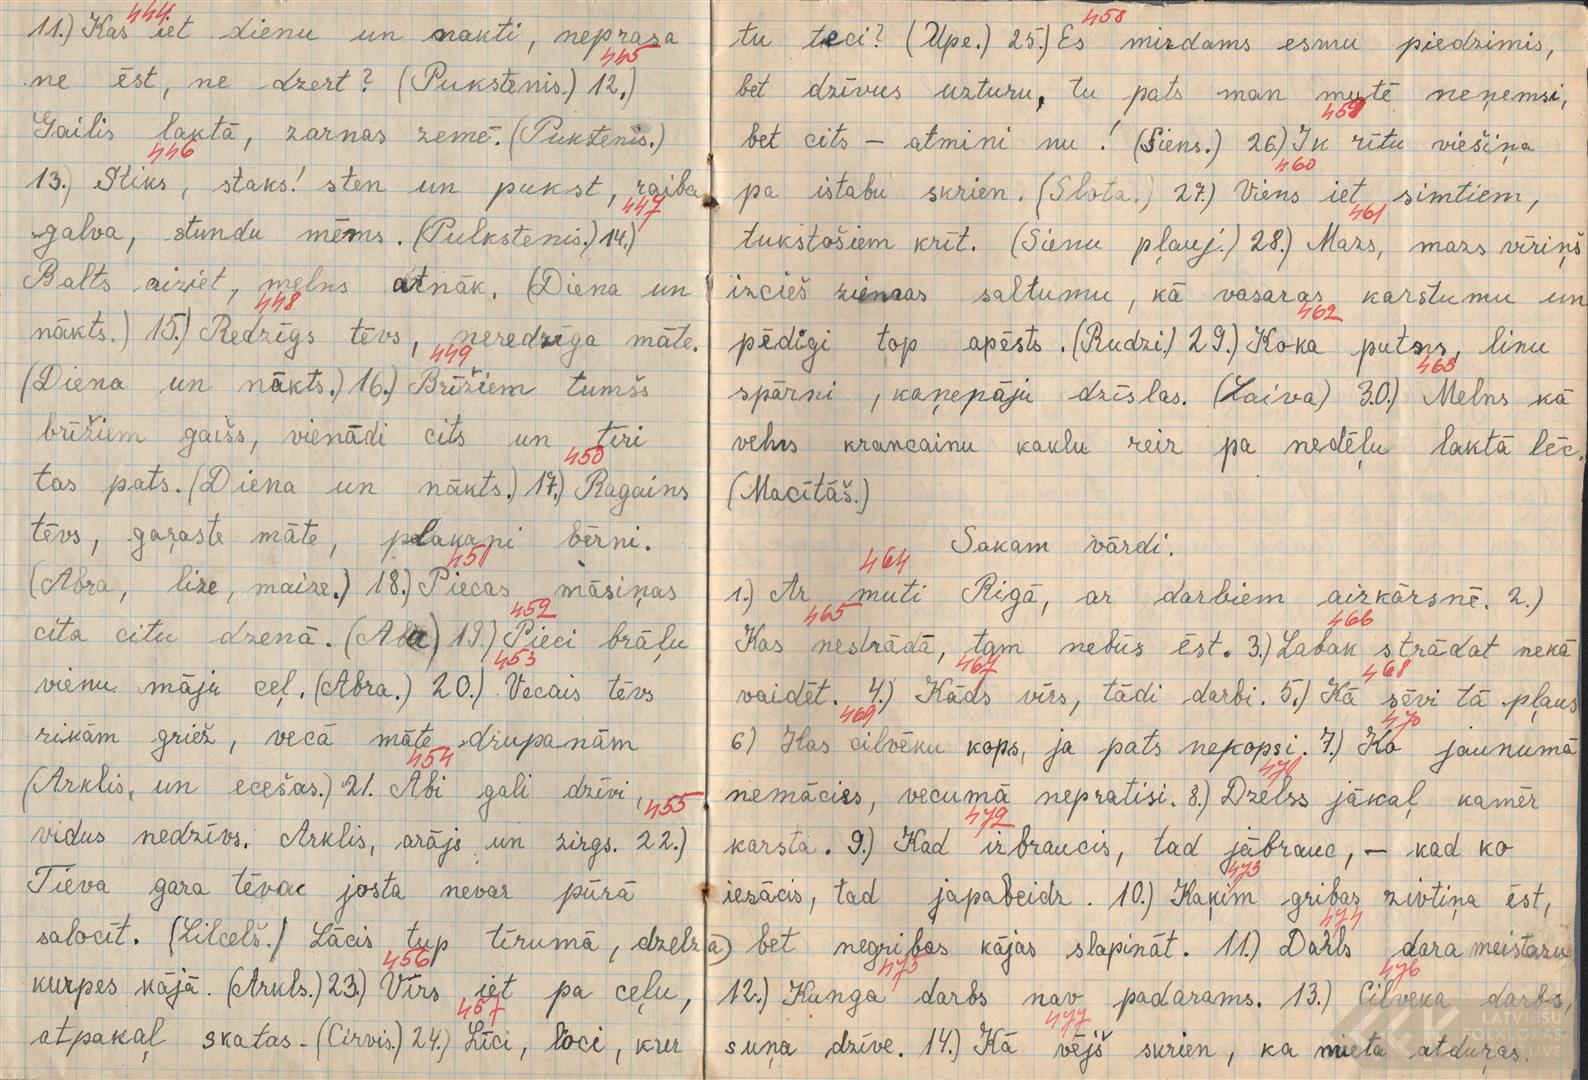 444
11.) Kas iet dienu un nakti, neprasa
445
ne ēst, ne dzert? (Pukstenis.) 12.)
Gailis laktā, zarnas zemē. (Pukstenis.)
446
13.) Stiks, staks! sten un pukst, raiba
447
galva, stundu mēms. (Pulkstenis.) 14.)
Balts aiziet, melns atnāk. (Diena un
448
nākts.) 15.) Redzīgs tēvs, neredzīga māte.
449
(Diena un nākts.) 16.) Brīžiem tumšs
brīžiem gaišs, vienādi cits un tīri
450
tas pats. (Diena un nākts.) 17.) Ragains
tēvs, gaŗaste māte, plakaņi bērni.
451
(Abra, lize, maize.) 18.) Piecas māsiņas
452
cita citu dzenā. (Aba) 19.) Pieci brāļu
453
vienu māju ceļ. (Abra.) 20.) Vecais tēvs
rikām griež, vecā māte drupanām
454
(Arklis, un ecešas.) 21. Abi gali dzīvi,
455
vidus nedzīvs. Arklis, arājs un zirgs. 22.)
Tieva gara tēvac josta nevar pūrā
salocīt. (Lilcelš.) Lācis tup tīrumā, dzelza)
456
kurpes kājā. (Arkls.) 23.) Vīrs iet pa ceļu,
457
atpakaļ skatas. (Cirvis.) 24.) Līci, loci, kur
458
tu teci? (Upe.) 25.) Es mirdams esmu piedzimis,
bet dzīvus uzturu, tu pats man mutē neņemsi,
459
bet cits – atmini nu! (Siens.) 26.) Ik rītu viešiņa
460
pa istabu skrien. (Slota.) 27.) Viens iet simtiem,
461
tukstošiem krīt. (Sienu pļauj.) 28.) Mazs, mazs vīriņš
izcieš ziemas saltumu, kā vasaras karstumu un
462
pēdīgi top apēsts. (Rudzi.) 29.) Koka putns, linu
463
spārni, kaņepāju dzīslas. (Laiva) 30.) Melns kā
velns krancainu kaklu reiz pa nedēļu laktā lēc.
(Macītāš.)
Sakam vārdi.
464
1.) Ar muti Rigā, ar darbiem aizkārsnē. 2.)
465 466
Kas nestrādā, tam nebūs ēst. 3.) Labak strādat nekā
467 468
vaidēt. 4.) Kāds vīrs, tādi darbi. 5.) Kā sēvi tā pļaus
469 470
6) Kas cilvēku kops, ja pats nekopsi. 7.) Ko jaunumā
471
nemācies, vecumā nepratisi. 8.) Dzelzs jākaļ kamēr
472
karsta. 9.) Kad izbraucis, tad jābrauc, – kad ko
473
iesācis, tad japabeidz. 10.) Kaķim gribas zivtiņa ēst,
474
bet negribas kājas slapināt. 11.) Darbs dara meistaru
475 476
12.) Kunga darbs nav padarams. 13.) Cilveka darbs,
477
suņa dzīve. 14.) Kā vējš skrien, ka mieta atduŗas.
LATVIEŠU